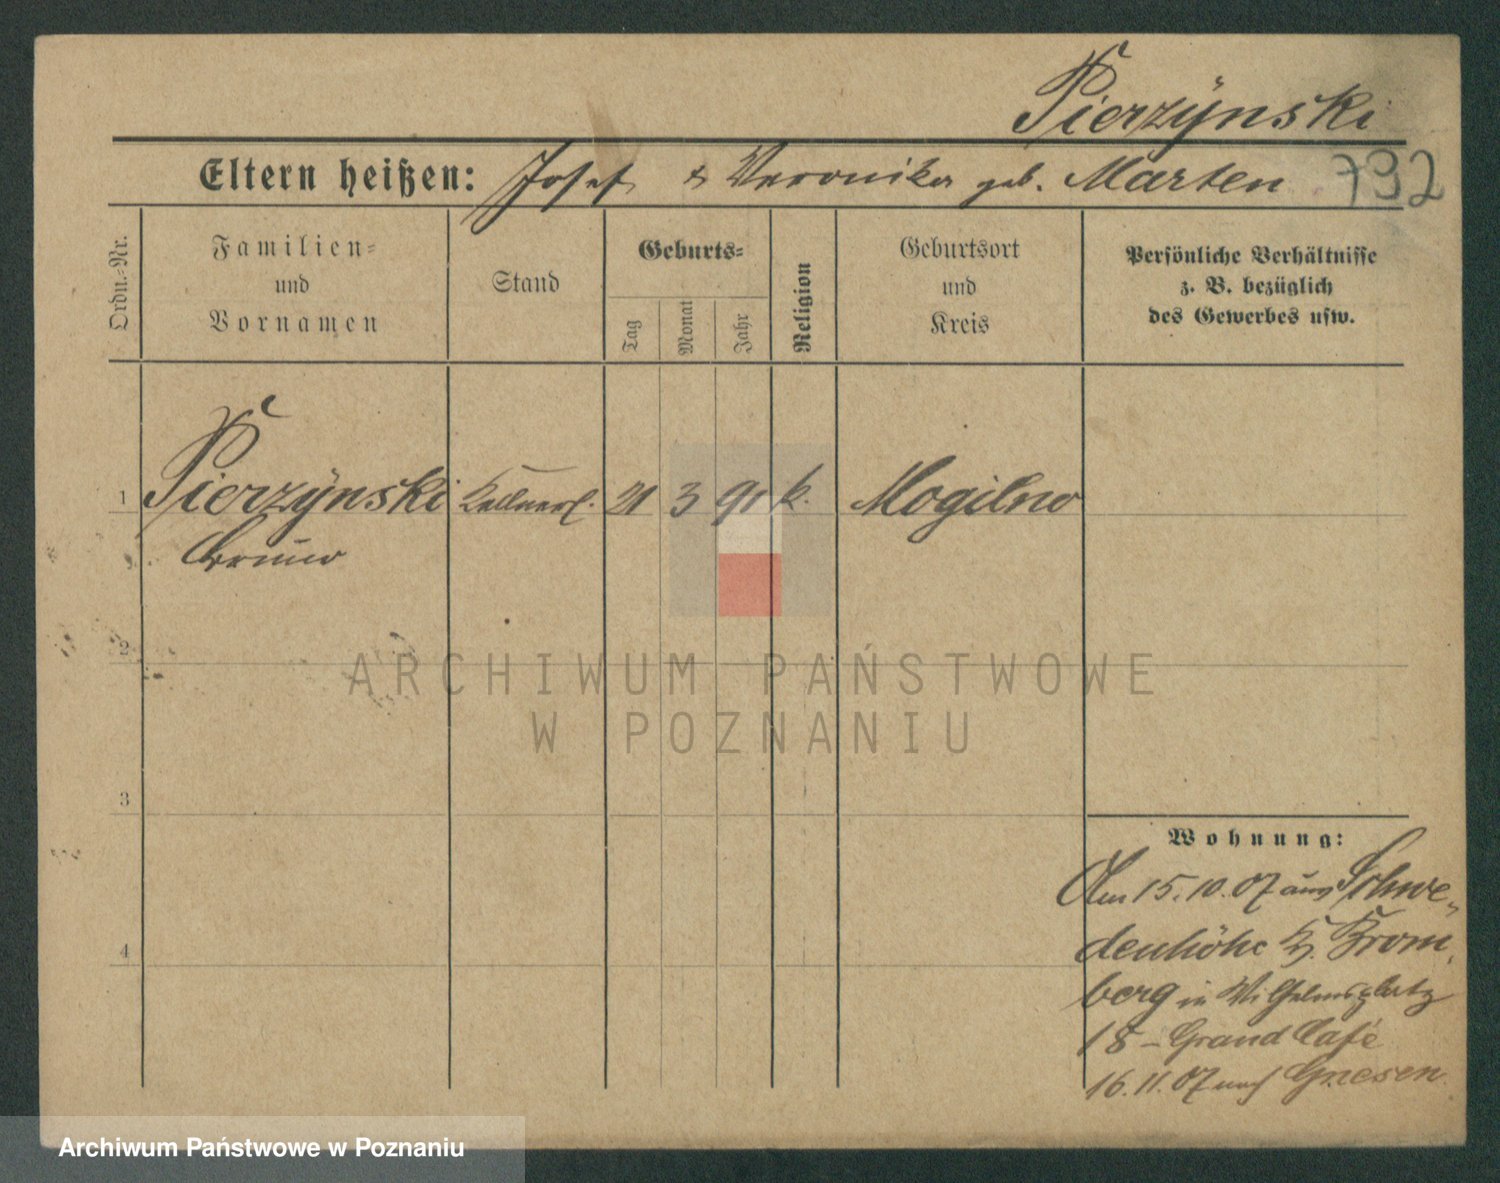 Pierzÿnski
Eltern heißen: Josef & Veronika geb. Marten 792
Ordn.-Nr.
Familien-
und
Vornamen
Stand
Geburts-
Tag
Monat
Jahr
Religion
Geburtsort
und
Kreis
Persönliche Verhältnisse
z. B. bezüglich
des Gewerbes usw.
1 Pierzÿnski Kellnerl. 21 3 91 k. Mogilno
Bruno
2
3
4
Wohnung:
Am 15.10.07 aus Schwe-
denhöhe K. Brom-
berg in Wilhelmsplatz
18 - Grand Café
16.11.07 nach Gnesen
ARCHIWUM PAŃSTWOWE
W POZNANIU
Archiwum Państwowe w Poznaniu